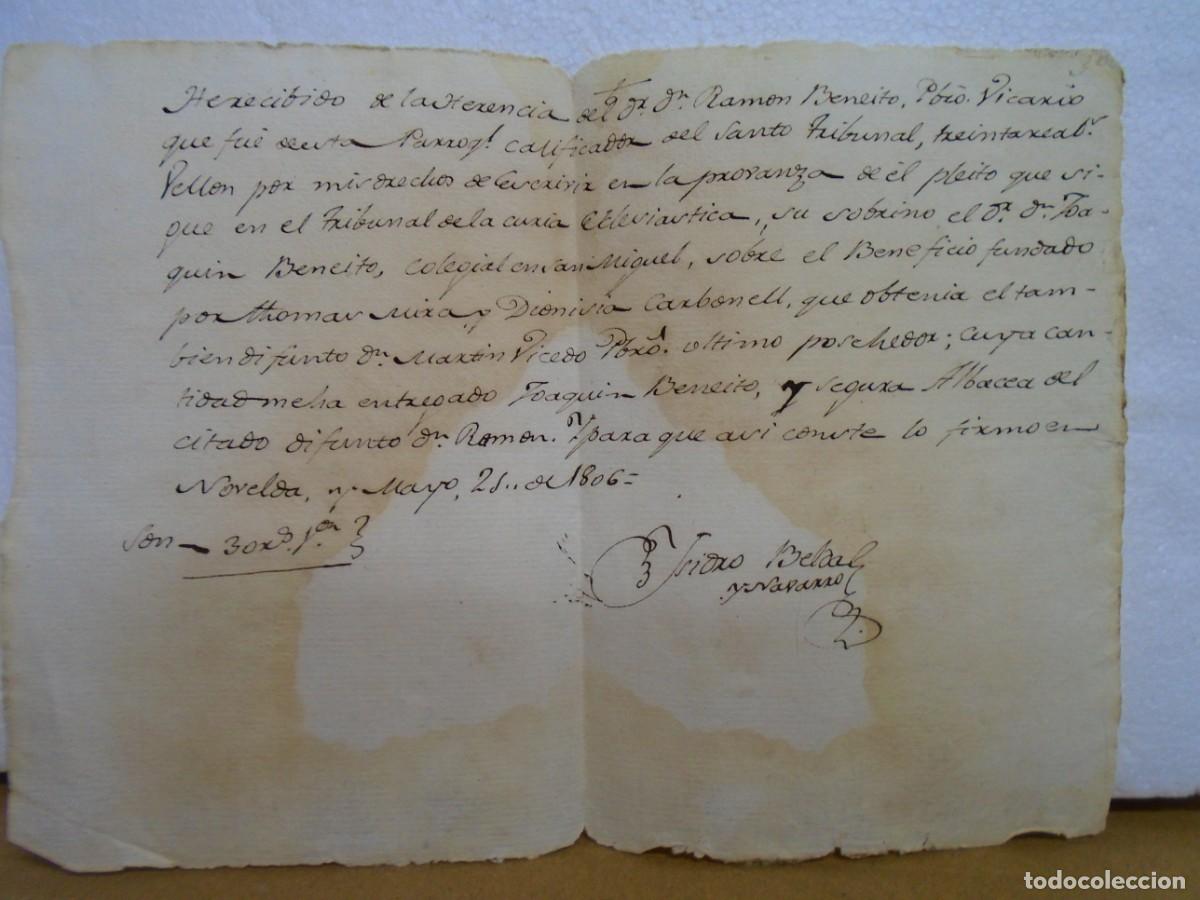 He recibido de la Herencia del qº Dr. Dn. Ramon Beneito, Pbro. Vicario
que fué de esta Parroql. Calificador del Santo Tribunal, treinta reals.
Vellon por mis drechos de Escrivir en la provanza de el pleito que si-
gue en el Tribunal de la curia Eclesiastica, su sobrino el Dr. Dn. Joa-
quin Beneito, Colegial en San Miguel, sobre el Beneficio fundado
por Thomas Mira, y Dionisia Carbonell, que obtenia el tam-
bien difunto Dn. Martin Vicedo Pbro. ultimo poschedor; cuya can-
tidad me ha entregado Joaquin Beneito, y Segura Albacea del
citado difunto Dn. Ramon. Y para que asi conste lo firmo en
Novelda, y Mayo, 21.. de 1806=
Son- 30 rs. Vn.
Isidro Belda
y Navarro
todocoleccion